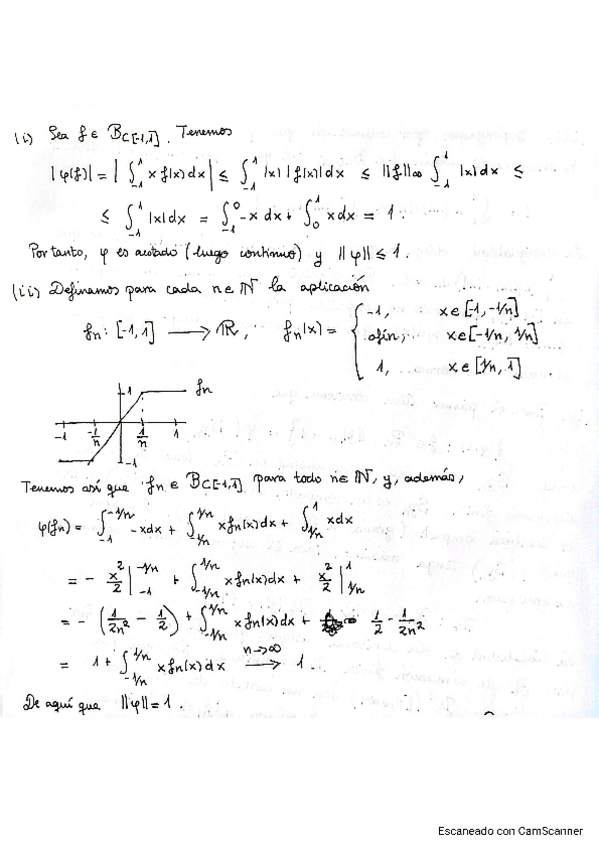 (i) Sea f ∈ B_{C[-1,1]}. Tenemos
|φ(f)| = |∫_{-1}^{1} x f(x) dx| ≤ ∫_{-1}^{1} |x| |f(x)| dx ≤ ||f||_∞ ∫_{-1}^{1} |x| dx ≤
≤ ∫_{-1}^{1} |x| dx = ∫_{-1}^{0} -x dx + ∫_{0}^{1} x dx = 1.
Por tanto, φ es acotado (luego continuo) y ||φ|| ≤ 1.
(ii) Definamos para cada n ∈ ℕ la aplicación
f_n : [-1,1] ⟶ ℝ, f_n(x) = { -1, x ∈ [-1, -1/n]
afín, x ∈ [-1/n, 1/n]
1, x ∈ [1/n, 1].
1 f_n
-1 -1/n 1/n 1
-1
Tenemos así que f_n ∈ B_{C[-1,1]} para todo n ∈ ℕ, y, además,
φ(f_n) = ∫_{-1}^{-1/n} -x dx + ∫_{-1/n}^{1/n} x f_n(x) dx + ∫_{1/n}^{1} x dx
= - x²/2 |_{-1}^{-1/n} + ∫_{-1/n}^{1/n} x f_n(x) dx + x²/2 |_{1/n}^{1}
= - (1/2n² - 1/2) + ∫_{-1/n}^{1/n} x f_n(x) dx + 1/2 - 1/2n²
= 1 + ∫_{-1/n}^{1/n} x f_n(x) dx ⟶^{n→∞} 1.
De aquí que ||φ|| = 1.
Escaneado con CamScanner